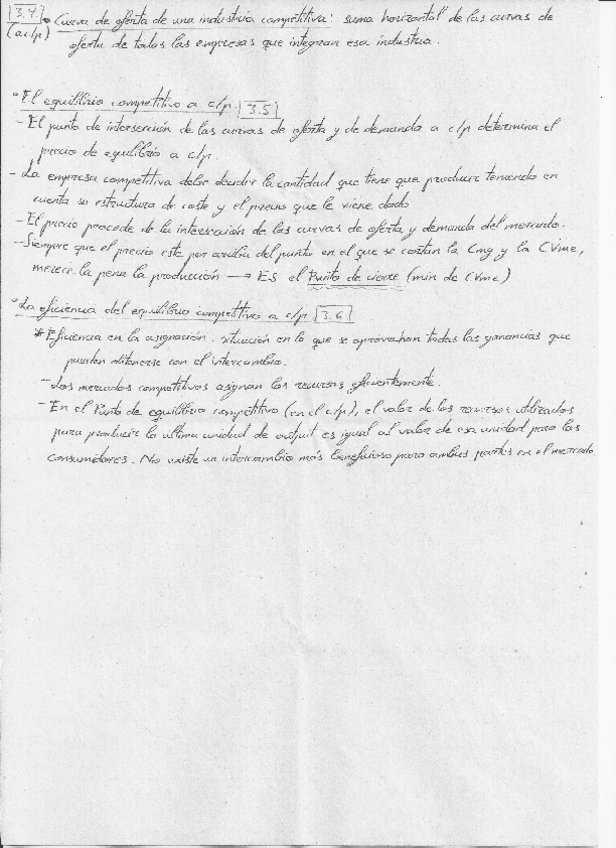 3.4. • Curva de oferta de una industria competitiva: suma horizontal de las curvas de
(a c/p) oferta de todas las empresas que integran esa industria.
• El equilibrio competitivo a c/p. 3.5
- El punto de intersección de las curvas de oferta y de demanda a c/p determina el
precio de equilibrio a c/p.
- La empresa competitiva debe decidir la cantidad que tiene que producir teniendo en
cuenta su estructura de coste y el precio que le viene dado
- El precio procede de la intersección de las curvas de oferta y demanda del mercado.
- Siempre que el precio este por arriba del punto en el que se cortan la Cmg y la CVme,
merece la pena la producción → Es el Punto de cierre (min de CVme)
• La eficiencia del equilibrio competitivo a c/p 3.6
* Eficiencia en la asignación: situación en la que se aprovechan todas las ganancias que
pueden obtenerse con el intercambio.
- Los mercados competitivos asignan los recursos eficientemente.
- En el Punto de equilibrio competitivo (en el c/p), el valor de los recursos utilizados
para producir la ultima unidad de output es igual al valor de esa unidad para los
consumidores. No existe un intercambio más beneficioso para ambas partes en el mercado